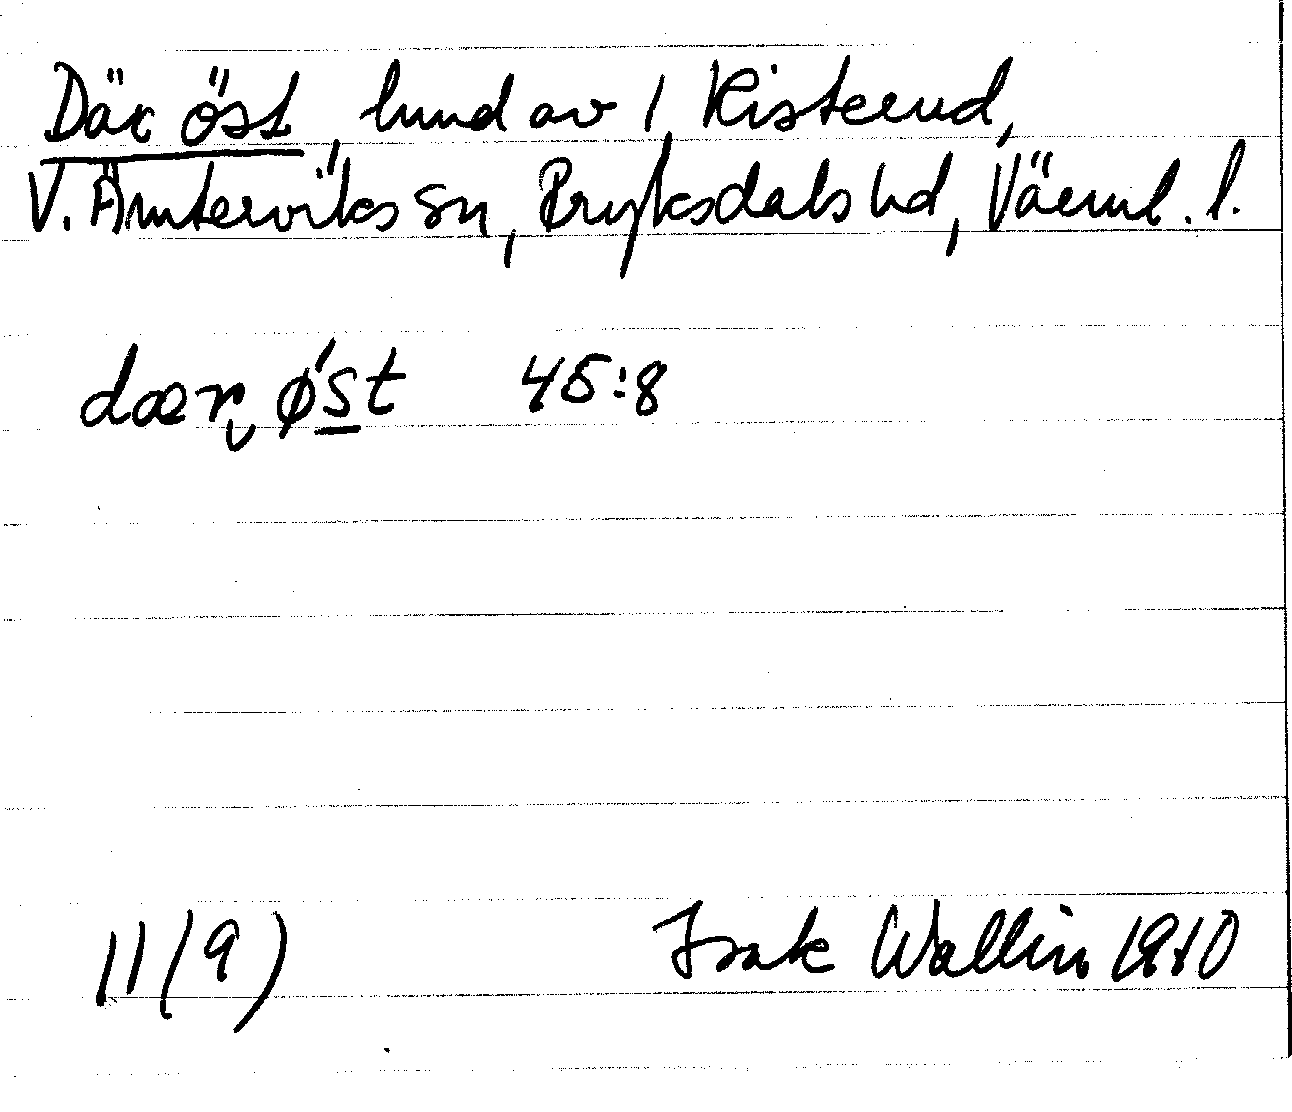 Där öst, lund av 1 Risterud,
V. Ämterviks sn, Fryksdals hd, Värml. l.
dær øst 45:8
11(9) Isak Wallin 1910